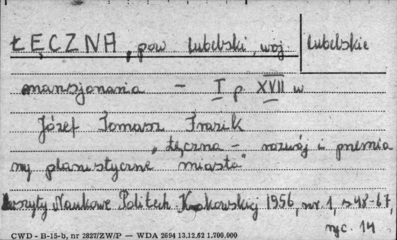 ŁĘCZNA, pow lubelski, woj. lubelskie
mansjonaria – I p XVII w
Józef Tomasz Frazik
"Łęczna – rozwój i przemia
ny planistyczne miasta"
Zeszyty Naukowe Politech Krakowskiej 1956, nr. 1, s 48-67,
ryc. 14
CWD - B-15-b, nr 2827/ZW/P — WDA 2694 13.12.62 1.700.000